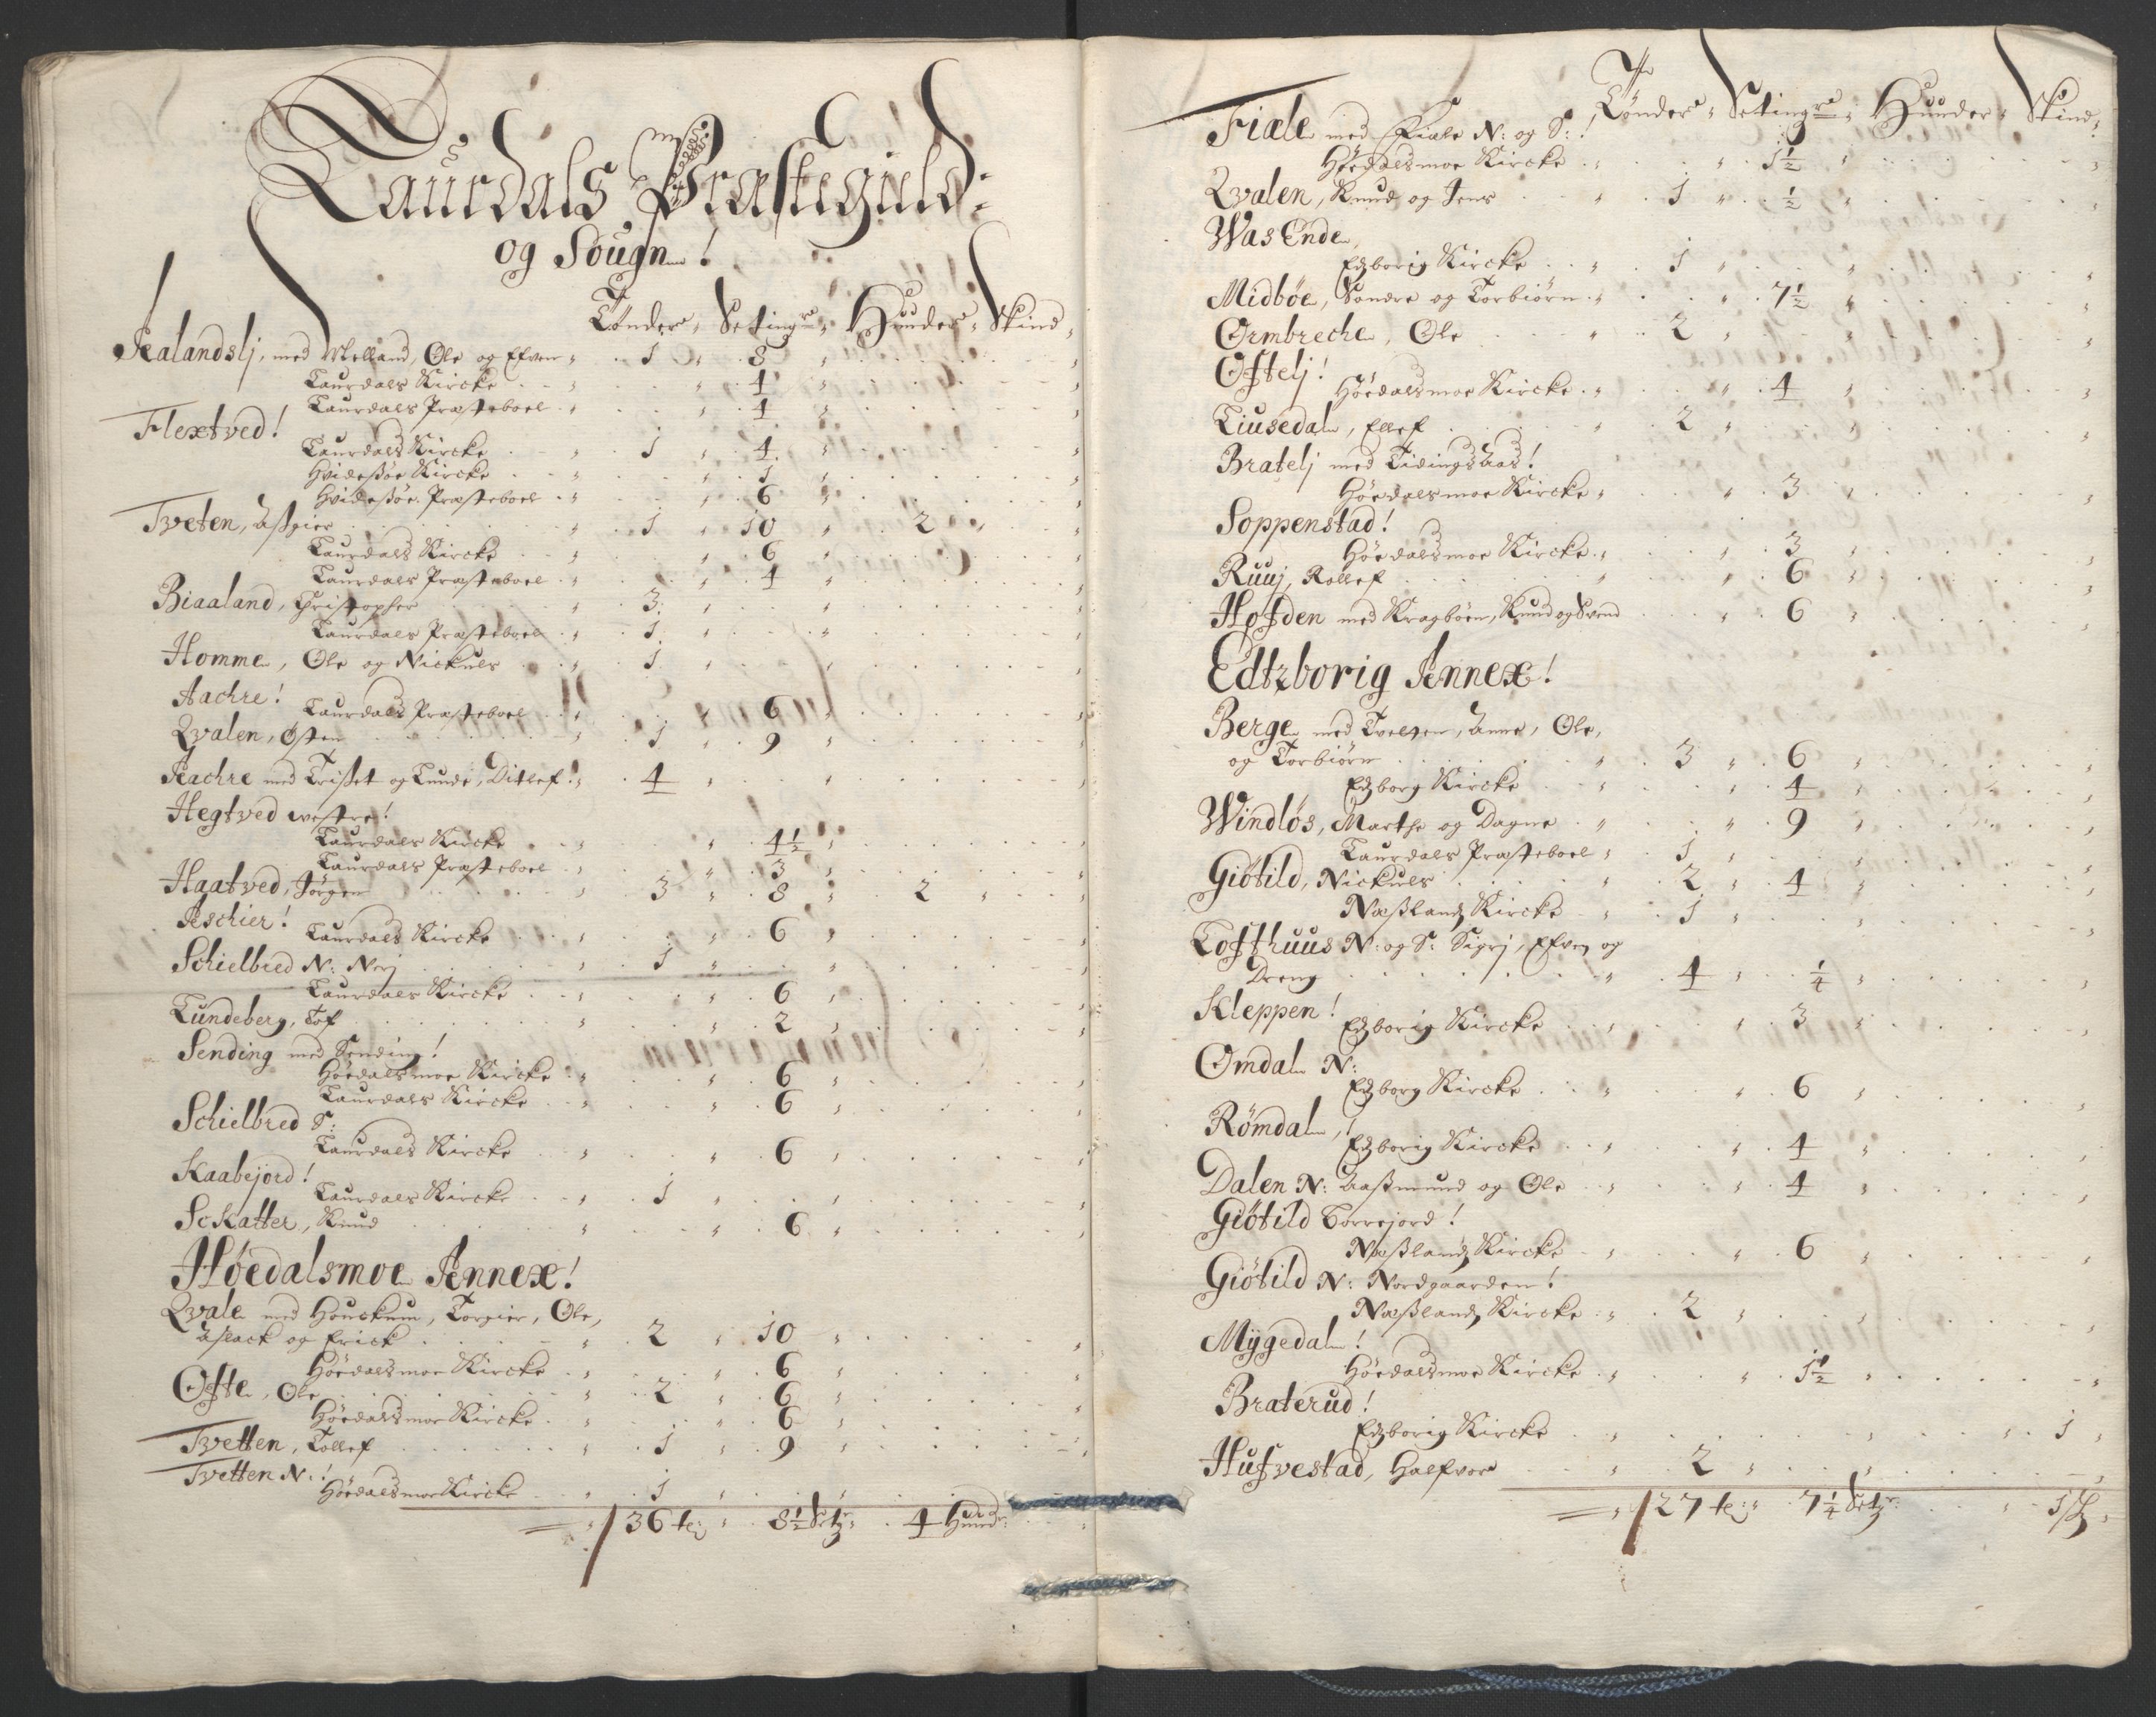 Laurdals Præstegield:
og Sougn!
Tønder, Setinger, Hunder, Skind,
Aalandslj, med Melland, Ole og Efven 1 8
Laurdals Kircke 4
Laurdals Præsteboel 4
Flextved!
Laurdals Kircke 1 4
Hvidessøe Kircke 1
Hvidessøe Præsteboel 6
Tveten, Assgier 1 10 2
Laurdals Kircke 6
Laurdals Præsteboel 4
Biaaland, Christopher 3
Laurdals Præsteboel 1
Homme, Ole og Nickuls 1
Aachre!
Laurdals Præsteboel 6
Qvalen, Østen 1 9
Aachre med Trisset og Lunde, Ditlef 4
Hegtved westre!
Laurdals Kircke 4½
Laurdals Præsteboel 3
Haatved, Jörgen 3 8 2
Aschier!
Laurdals Kircke 6
Schielbred N: Nerj 1
Laurdals Kircke 6
Lundeberg, Tof 2
Sending med Sending!
Höedalsmoe Kircke 6
Laurdals Kircke 6
Schielbred S:
Laurdals Kircke 6
Kaabejord!
Laurdals Kircke 1
Sckatter, Knud 6
Høedalsmoe Annex!
Qvale med Houckum, Torgier, Ole,
Aslack og Erick 2 10
Höedalsmoe Kircke 6
Ofte, Ole 2 6
Höedalsmoe Kircke 6
Tvetten, Tollef 1 9
Tvetten N:!
Höedalsmoe Kircke 1
36 te: 8½ Setz: 4 Hunde:
Tønder, Setinger, Hunder, Skind,
Fiale med Fiale N: og S:
Höedalsmoe Kircke 1½
Qvalen, Knud og Jens 1 ½
WasEnde,
Edzborig Kircke 1
Midböe, Sondre og Torbiörn 7½
Ormbreche, Ole 2
Oftelj!
Höedalsmoe Kircke 4
Liusedal, Ellef 2
Bratelj med Tidings Aas!
Höedalsmoe Kircke 3
Soppenstad!
Höedalsmoe Kircke 3
Ruuj, Rollef 6
Hofden med Kragböen, Knud og Svend 6
Edtzborig Annex!
Berge med Tveiten, Anne, Ole,
og Torbiörn 3 6
Edzborg Kircke 4
Windlös, Marthe og Dagne 9
Laurdals Præsteboel 1
Giötild, Nickuls 2 4
Næsslandz Kircke 1
Lofthuus N: og S: Sigrj, Efven og
Dreng 4 ¼
Kleppen!
Edzborig Kircke 3
Omdal N:
Edzborg Kircke 6
Römdal,!
Edzborig Kircke 4
Dalen N: Aassmund og Ole 4
Giötild Torrejord!
Næsslandz Kircke 6
Giötild N: Nordgaarden!
Næsslandz Kircke 2
Mÿgedal!
Höedalsmoe Kircke 1½
Braterud!
Edzborig Kircke 1
Hufvestad, Halfvor 2
27 te: 7¼ Setz: 1 sk